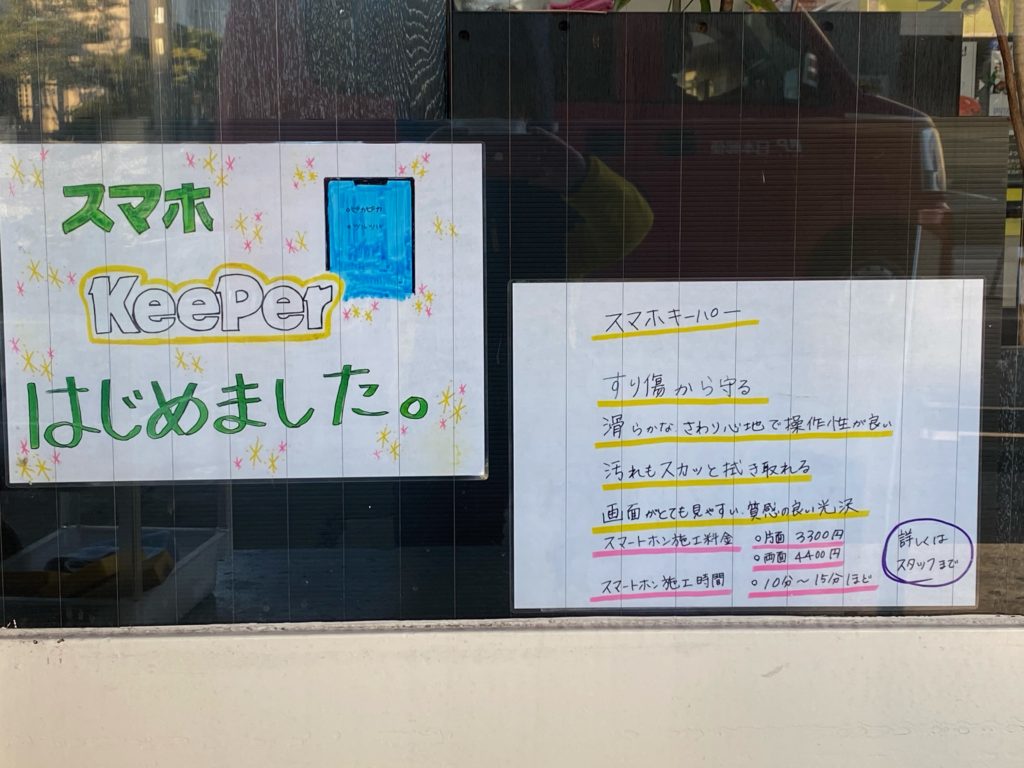 スマホ
KeePer
はじめました。
スマホキーパー
すり傷から守る
滑らかなさわり心地で操作性が良い
汚れもスカッと拭き取れる
画面がとても見やすい.質感の良い光沢
スマートホン施工料金 ○片面 3300円
○両面 4400円
スマートホン施工時間 ○10分〜15分ほど
詳しくは
スタッフまで